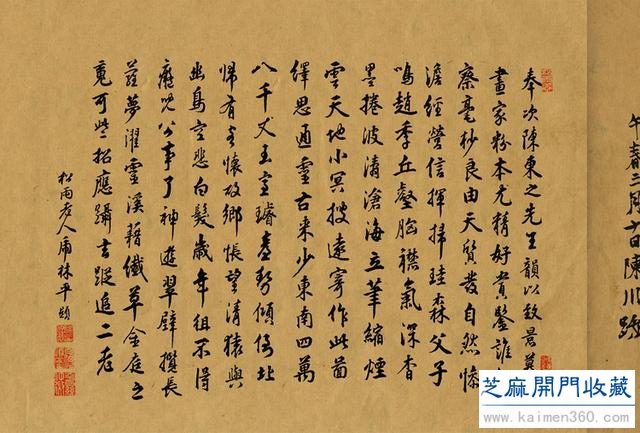 午春二月十日陳川
奉次陳東之先生韻以致景
畫家粉本尤精好賞鑒誰
察毫杪良由天質發自然慘
澹經營信揮掃珪森父子
鳴趙李丘壑胸襟氣深杳
墨捲波濤滄海立筆縮煙
雲天地小冥搜遠寄作此畐
繹思通靈古來少東南四萬
八千丈玉室璿臺勢傾倚北
歸有客懷故鄉悵望清猿與
幽鳥空悲白髮歲年徂不得
癡兒公事了神遊翠壁攬長
蘿夢濯靈溪藉纖草金庭之
東可些招應躡玄蹤追二老
松雨老人雲林平顯
芝麻開門收藏
www.kaimen360.com